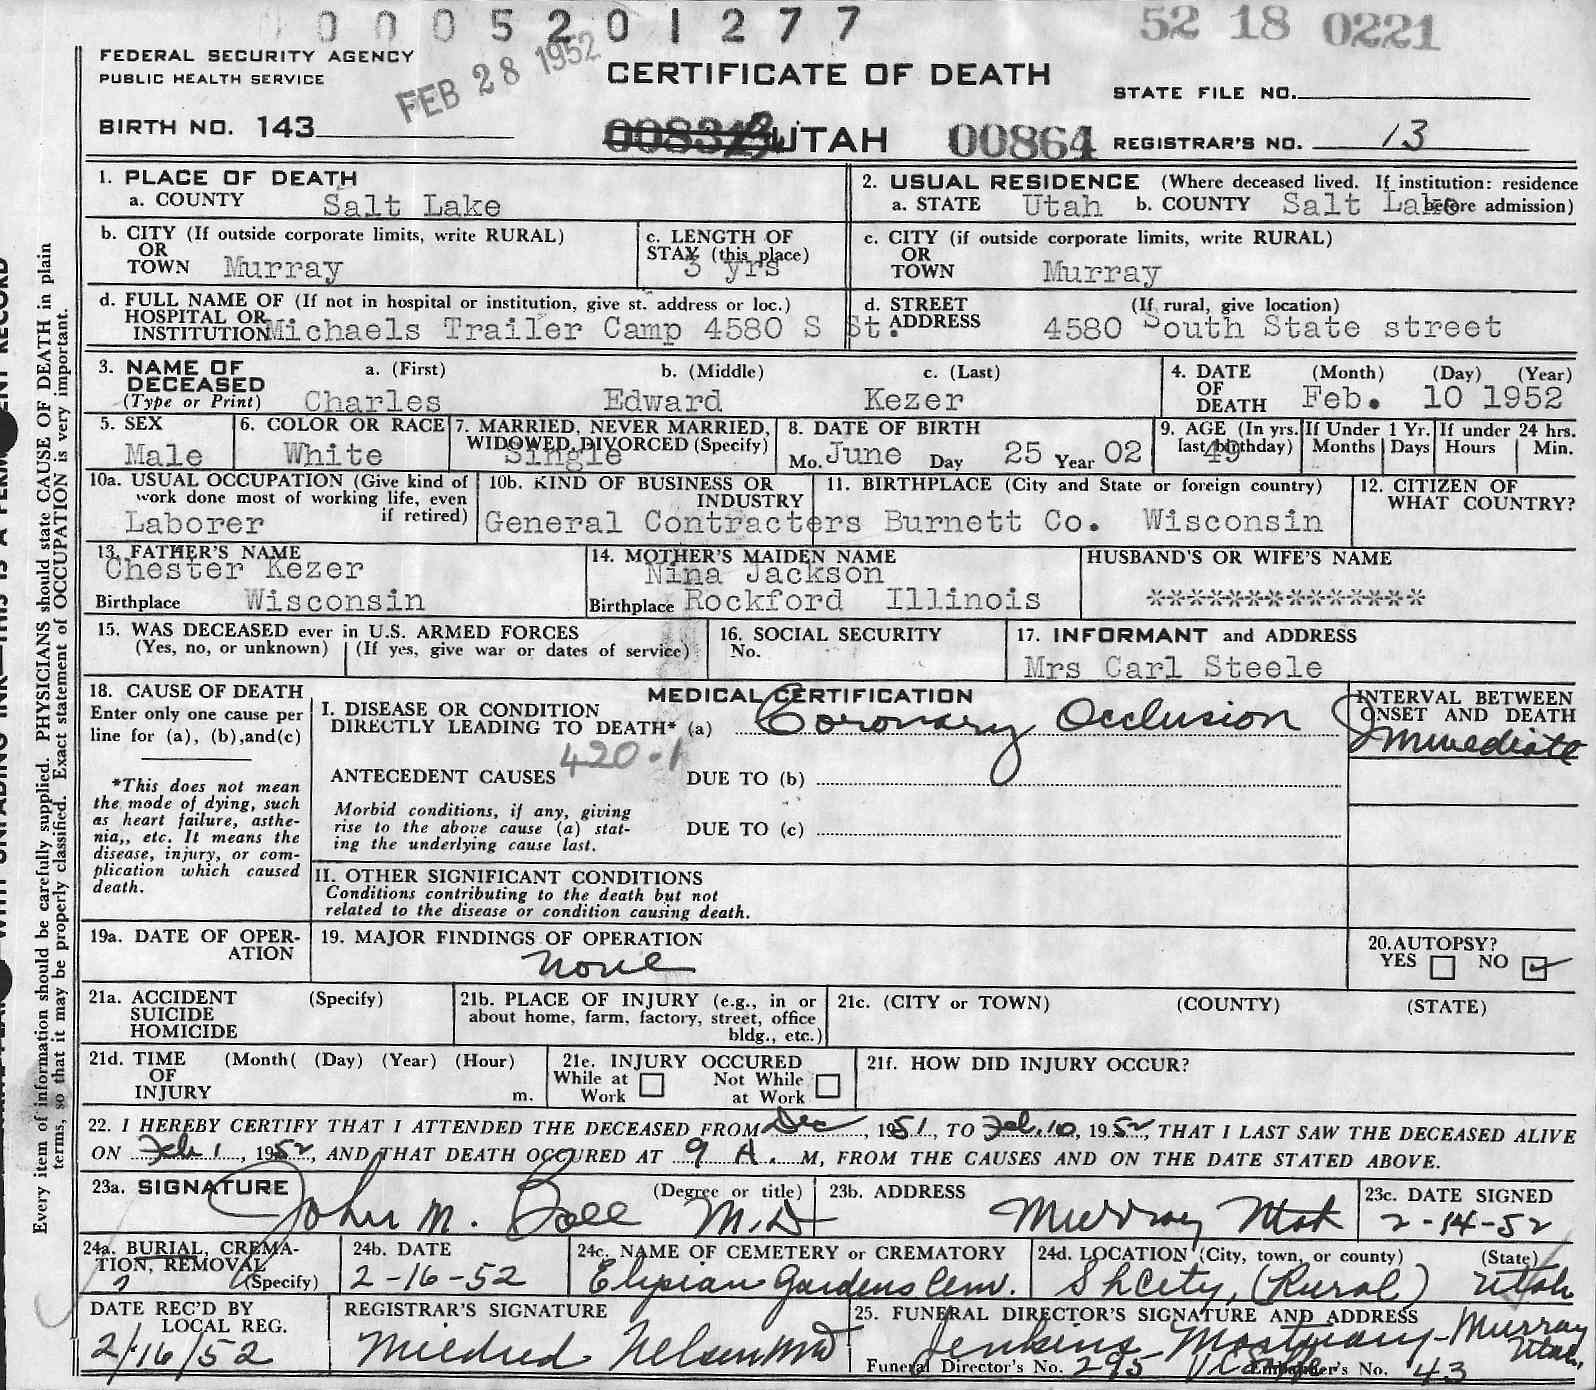 0 0 0 5 2 0 1 2 7 7
52 18 0221
FEDERAL SECURITY AGENCY
PUBLIC HEALTH SERVICE
FEB 28 1952
CERTIFICATE OF DEATH
STATE FILE NO.
BIRTH NO. 143
UTAH 00864
REGISTRAR'S NO. 13
1. PLACE OF DEATH
a. COUNTY Salt Lake
2. USUAL RESIDENCE (Where deceased lived. If institution: residence before admission)
a. STATE Utah b. COUNTY Salt Lake
b. CITY (If outside corporate limits, write RURAL)
OR
TOWN Murray
c. LENGTH OF
STAY (this place)
3 yrs
c. CITY (if outside corporate limits, write RURAL)
OR
TOWN Murray
d. FULL NAME OF (If not in hospital or institution, give st. address or loc.)
HOSPITAL OR
INSTITUTION Michaels Trailer Camp 4580 S St.
d. STREET (If rural, give location)
ADDRESS 4580 South State street
3. NAME OF
DECEASED
(Type or Print)
a. (First) b. (Middle) c. (Last)
Charles Edward Kezer
4. DATE (Month) (Day) (Year)
OF
DEATH Feb. 10 1952
5. SEX
Male
6. COLOR OR RACE
White
7. MARRIED, NEVER MARRIED,
WIDOWED, DIVORCED (Specify)
Single
8. DATE OF BIRTH
Mo. June Day 25 Year 02
9. AGE (In yrs.
last birthday)
49
If Under 1 Yr.
Months Days
If under 24 hrs.
Hours Min.
10a. USUAL OCCUPATION (Give kind of
work done most of working life, even
if retired)
Laborer
10b. KIND OF BUSINESS OR
INDUSTRY
General Contracters
11. BIRTHPLACE (City and State or foreign country)
Burnett Co. Wisconsin
12. CITIZEN OF
WHAT COUNTRY?
13. FATHER'S NAME
Chester Kezer
Birthplace Wisconsin
14. MOTHER'S MAIDEN NAME
Nina Jackson
Birthplace Rockford Illinois
HUSBAND'S OR WIFE'S NAME
**************
15. WAS DECEASED ever in U.S. ARMED FORCES
(Yes, no, or unknown) (If yes, give war or dates of service)
16. SOCIAL SECURITY
No.
17. INFORMANT and ADDRESS
Mrs Carl Steele
18. CAUSE OF DEATH
Enter only one cause per
line for (a), (b), and (c)
*This does not mean
the mode of dying, such
as heart failure, asthe-
nia,, etc. It means the
disease, injury, or com-
plication which caused
death.
MEDICAL CERTIFICATION
I. DISEASE OR CONDITION
DIRECTLY LEADING TO DEATH* (a) Coronary Occlusion
420.1
INTERVAL BETWEEN
ONSET AND DEATH
Immediate
ANTECEDENT CAUSES DUE TO (b)
Morbid conditions, if any, giving
rise to the above cause (a) stat-
ing the underlying cause last.
DUE TO (c)
II. OTHER SIGNIFICANT CONDITIONS
Conditions contributing to the death but not
related to the disease or condition causing death.
19a. DATE OF OPER-
ATION
19. MAJOR FINDINGS OF OPERATION
none
20. AUTOPSY?
YES NO
21a. ACCIDENT (Specify)
SUICIDE
HOMICIDE
21b. PLACE OF INJURY (e.g., in or
about home, farm, factory, street, office
bldg., etc.)
21c. (CITY or TOWN) (COUNTY) (STATE)
21d. TIME (Month( (Day) (Year) (Hour)
OF
INJURY m.
21e. INJURY OCCURED
While at Work Not While at Work
21f. HOW DID INJURY OCCUR?
22. I HEREBY CERTIFY THAT I ATTENDED THE DECEASED FROM Dec, 1951, TO Feb. 10, 1952, THAT I LAST SAW THE DECEASED ALIVE
ON Feb 1, 1952, AND THAT DEATH OCCURED AT 9 A.M, FROM THE CAUSES AND ON THE DATE STATED ABOVE.
23a. SIGNATURE (Degree or title)
John M. M.D
23b. ADDRESS
Murray Utah
23c. DATE SIGNED
2-14-52
24a. BURIAL, CREMA-
TION, REMOVAL
(Specify)
24b. DATE
2-16-52
24c. NAME OF CEMETERY or CREMATORY
Elysian Gardens Cem.
24d. LOCATION (City, town, or county) (State)
(Rural) Utah
DATE REC'D BY
LOCAL REG.
2/16/52
REGISTRAR'S SIGNATURE
Mildred Nelson
25. FUNERAL DIRECTOR'S SIGNATURE AND ADDRESS
Jenkins Mortuary - Murray Utah,
Funeral Director's No. 295 Embalmer's No. 43
Every item of information should be carefully supplied. PHYSICIANS should state CAUSE OF DEATH in plain
terms, so that it may be properly classified. Exact statement of OCCUPATION is very important.